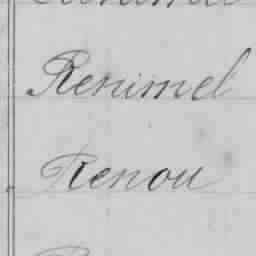 Renimel
Renou